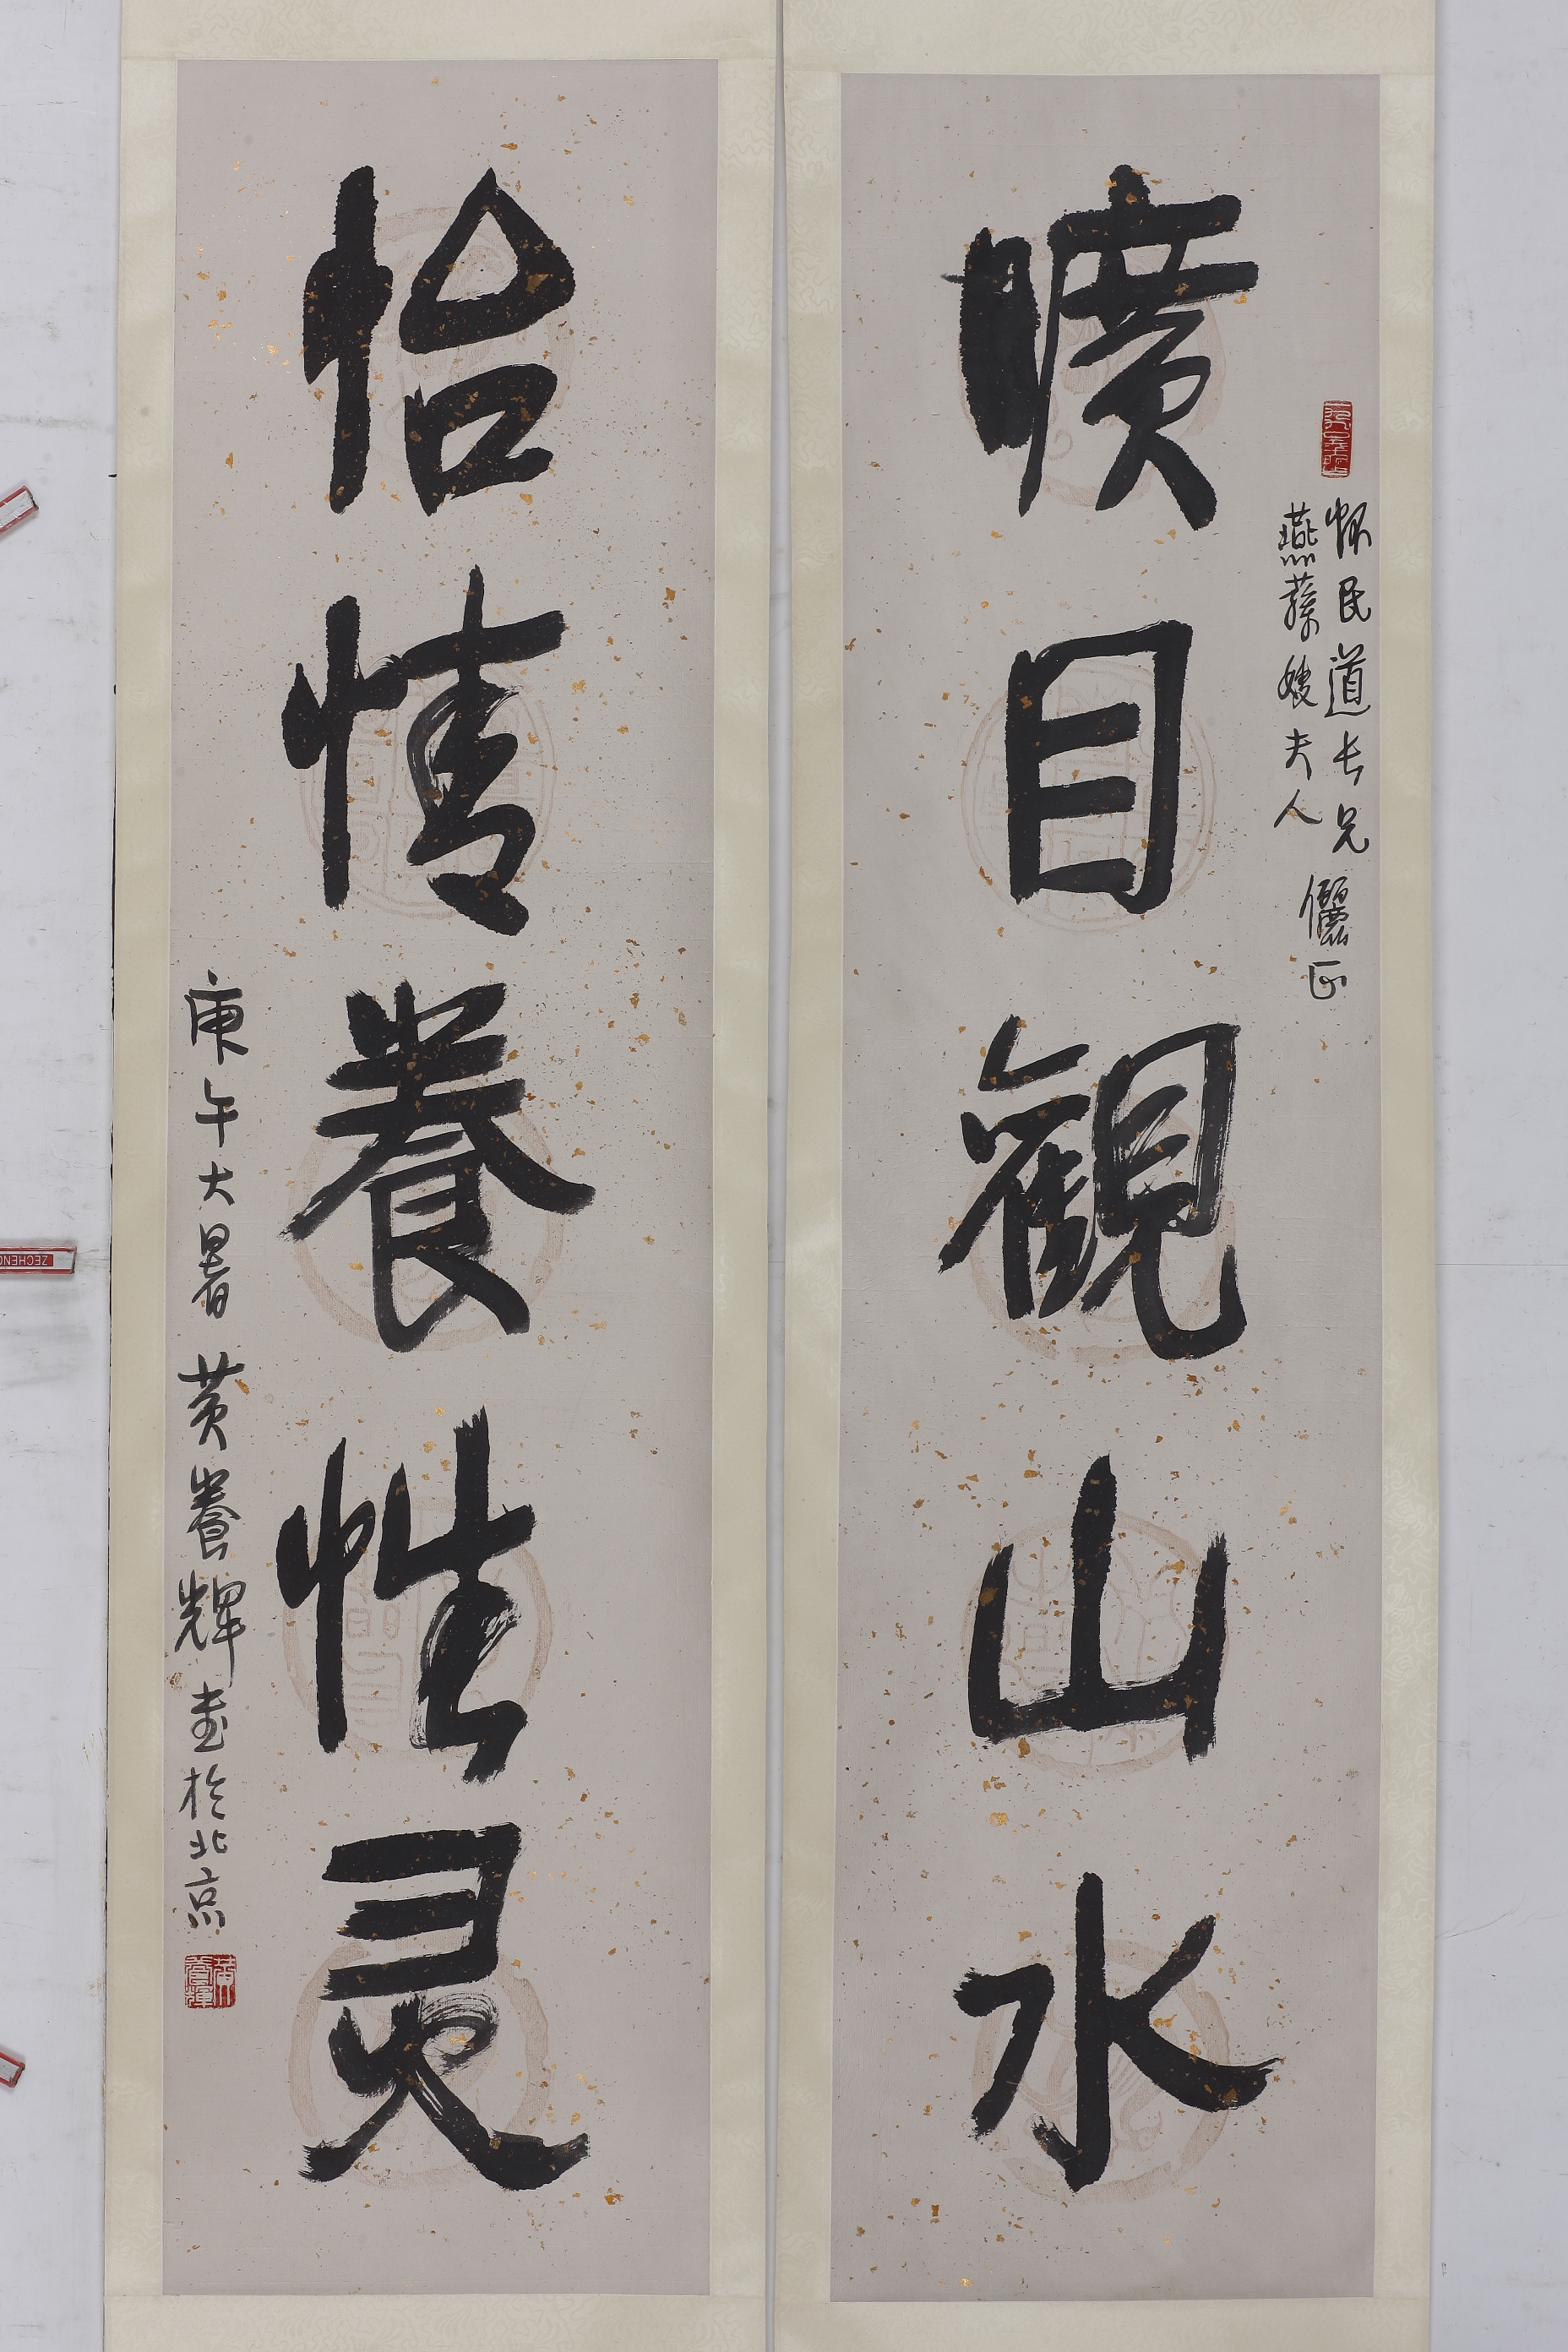 曠目觀山水
怀民道長兄
燕蓀嫂夫人
儷正
怡情養性灵
庚午大暑 黄養輝书於北京
黄養輝
ZECHENG